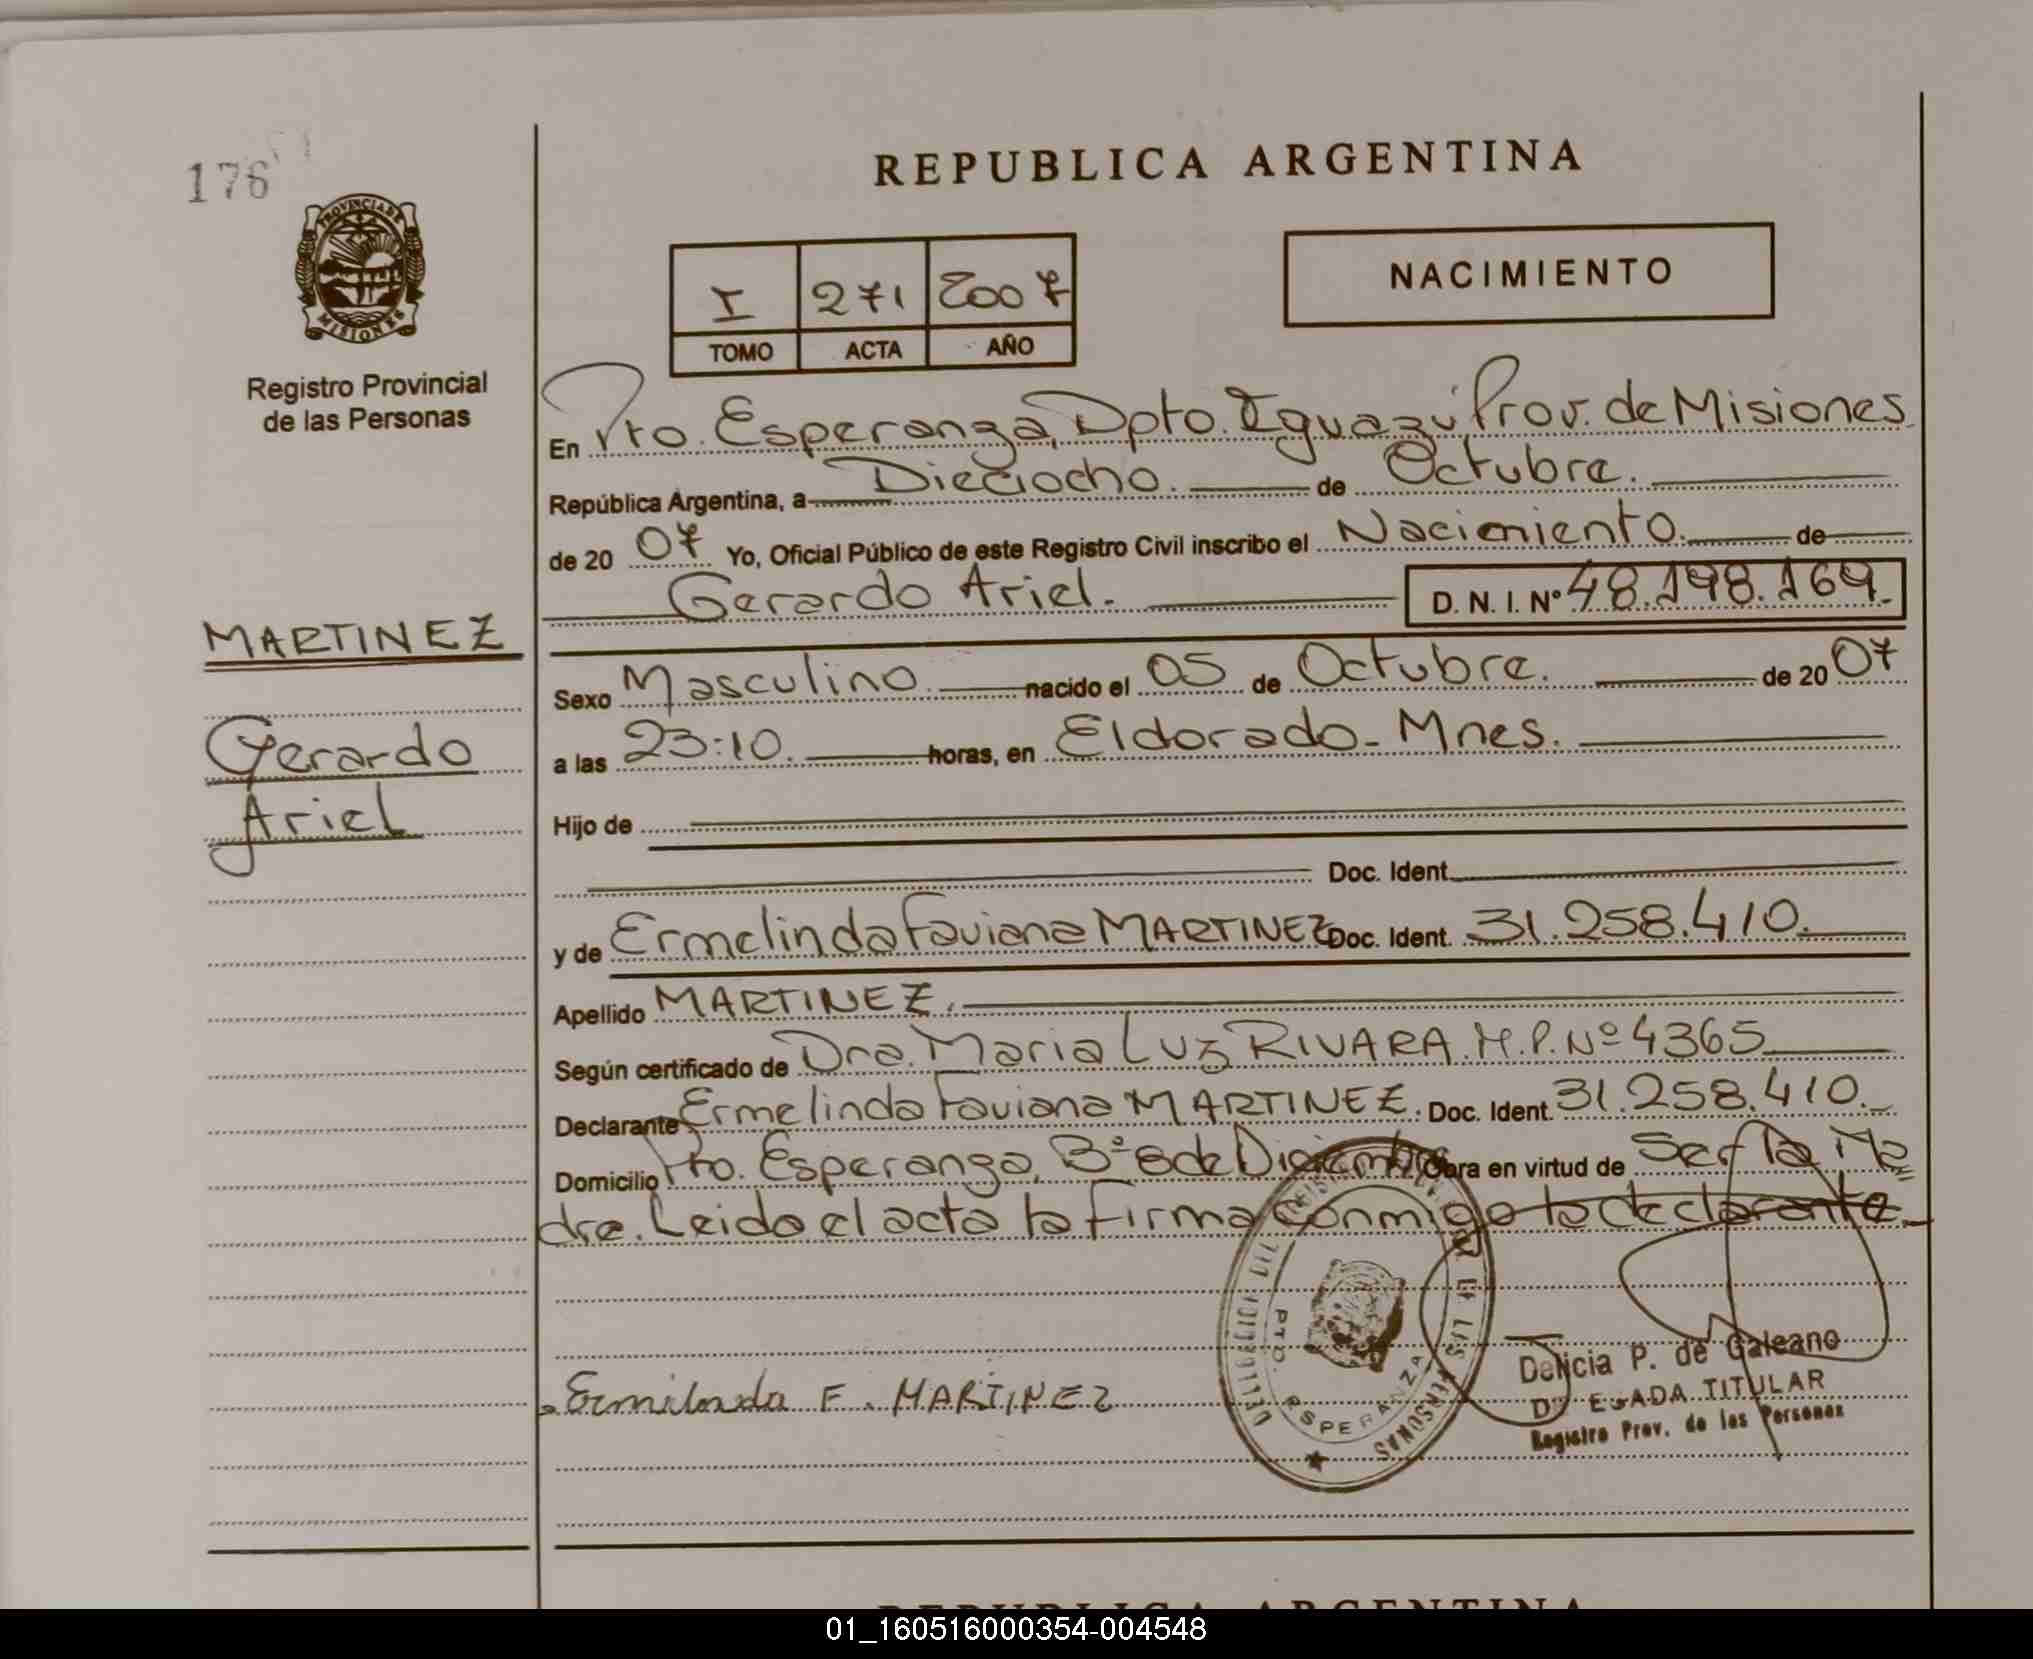 176
REPUBLICA ARGENTINA
PROVINCIA DE
MISIONES
Registro Provincial
de las Personas
I 271 2007
TOMO ACTA AÑO
NACIMIENTO
En Pto. Esperanza, Dpto. Iguazú Prov. de Misiones
República Argentina, a Dieciocho. de Octubre.
de 20 07 Yo, Oficial Público de este Registro Civil inscribo el Nacimiento. de
Gerardo Ariel. D. N. I. Nº 48.198.169.
MARTINEZ
Gerardo
Ariel
Sexo Masculino. nacido el 05 de Octubre. de 20 07
a las 23:10. horas, en Eldorado - Mnes.
Hijo de
Doc. Ident.
y de Ermelinda Faviana MARTINEZ Doc. Ident. 31.258.410.
Apellido MARTINEZ.
Según certificado de Dra. Maria Luz RIVARA. M.P. Nº 4365
Declarante Ermelinda Faviana MARTINEZ. Doc. Ident. 31.258.410.
Domicilio Pto. Esperanza, Bº 8 de Diciembre Obra en virtud de Ser la Ma=
dre. Leido el acta la firma conmigo la declarante.
DELEGACION DEL REGISTRO DE LAS PERSONAS
PTO. ESPERANZA
Ermilonda F. MARTINEZ
Delicia P. de Galeano
DELEGADA TITULAR
Registro Prov. de las Personas
REPUBLICA ARGENTINA
01_160516000354-004548